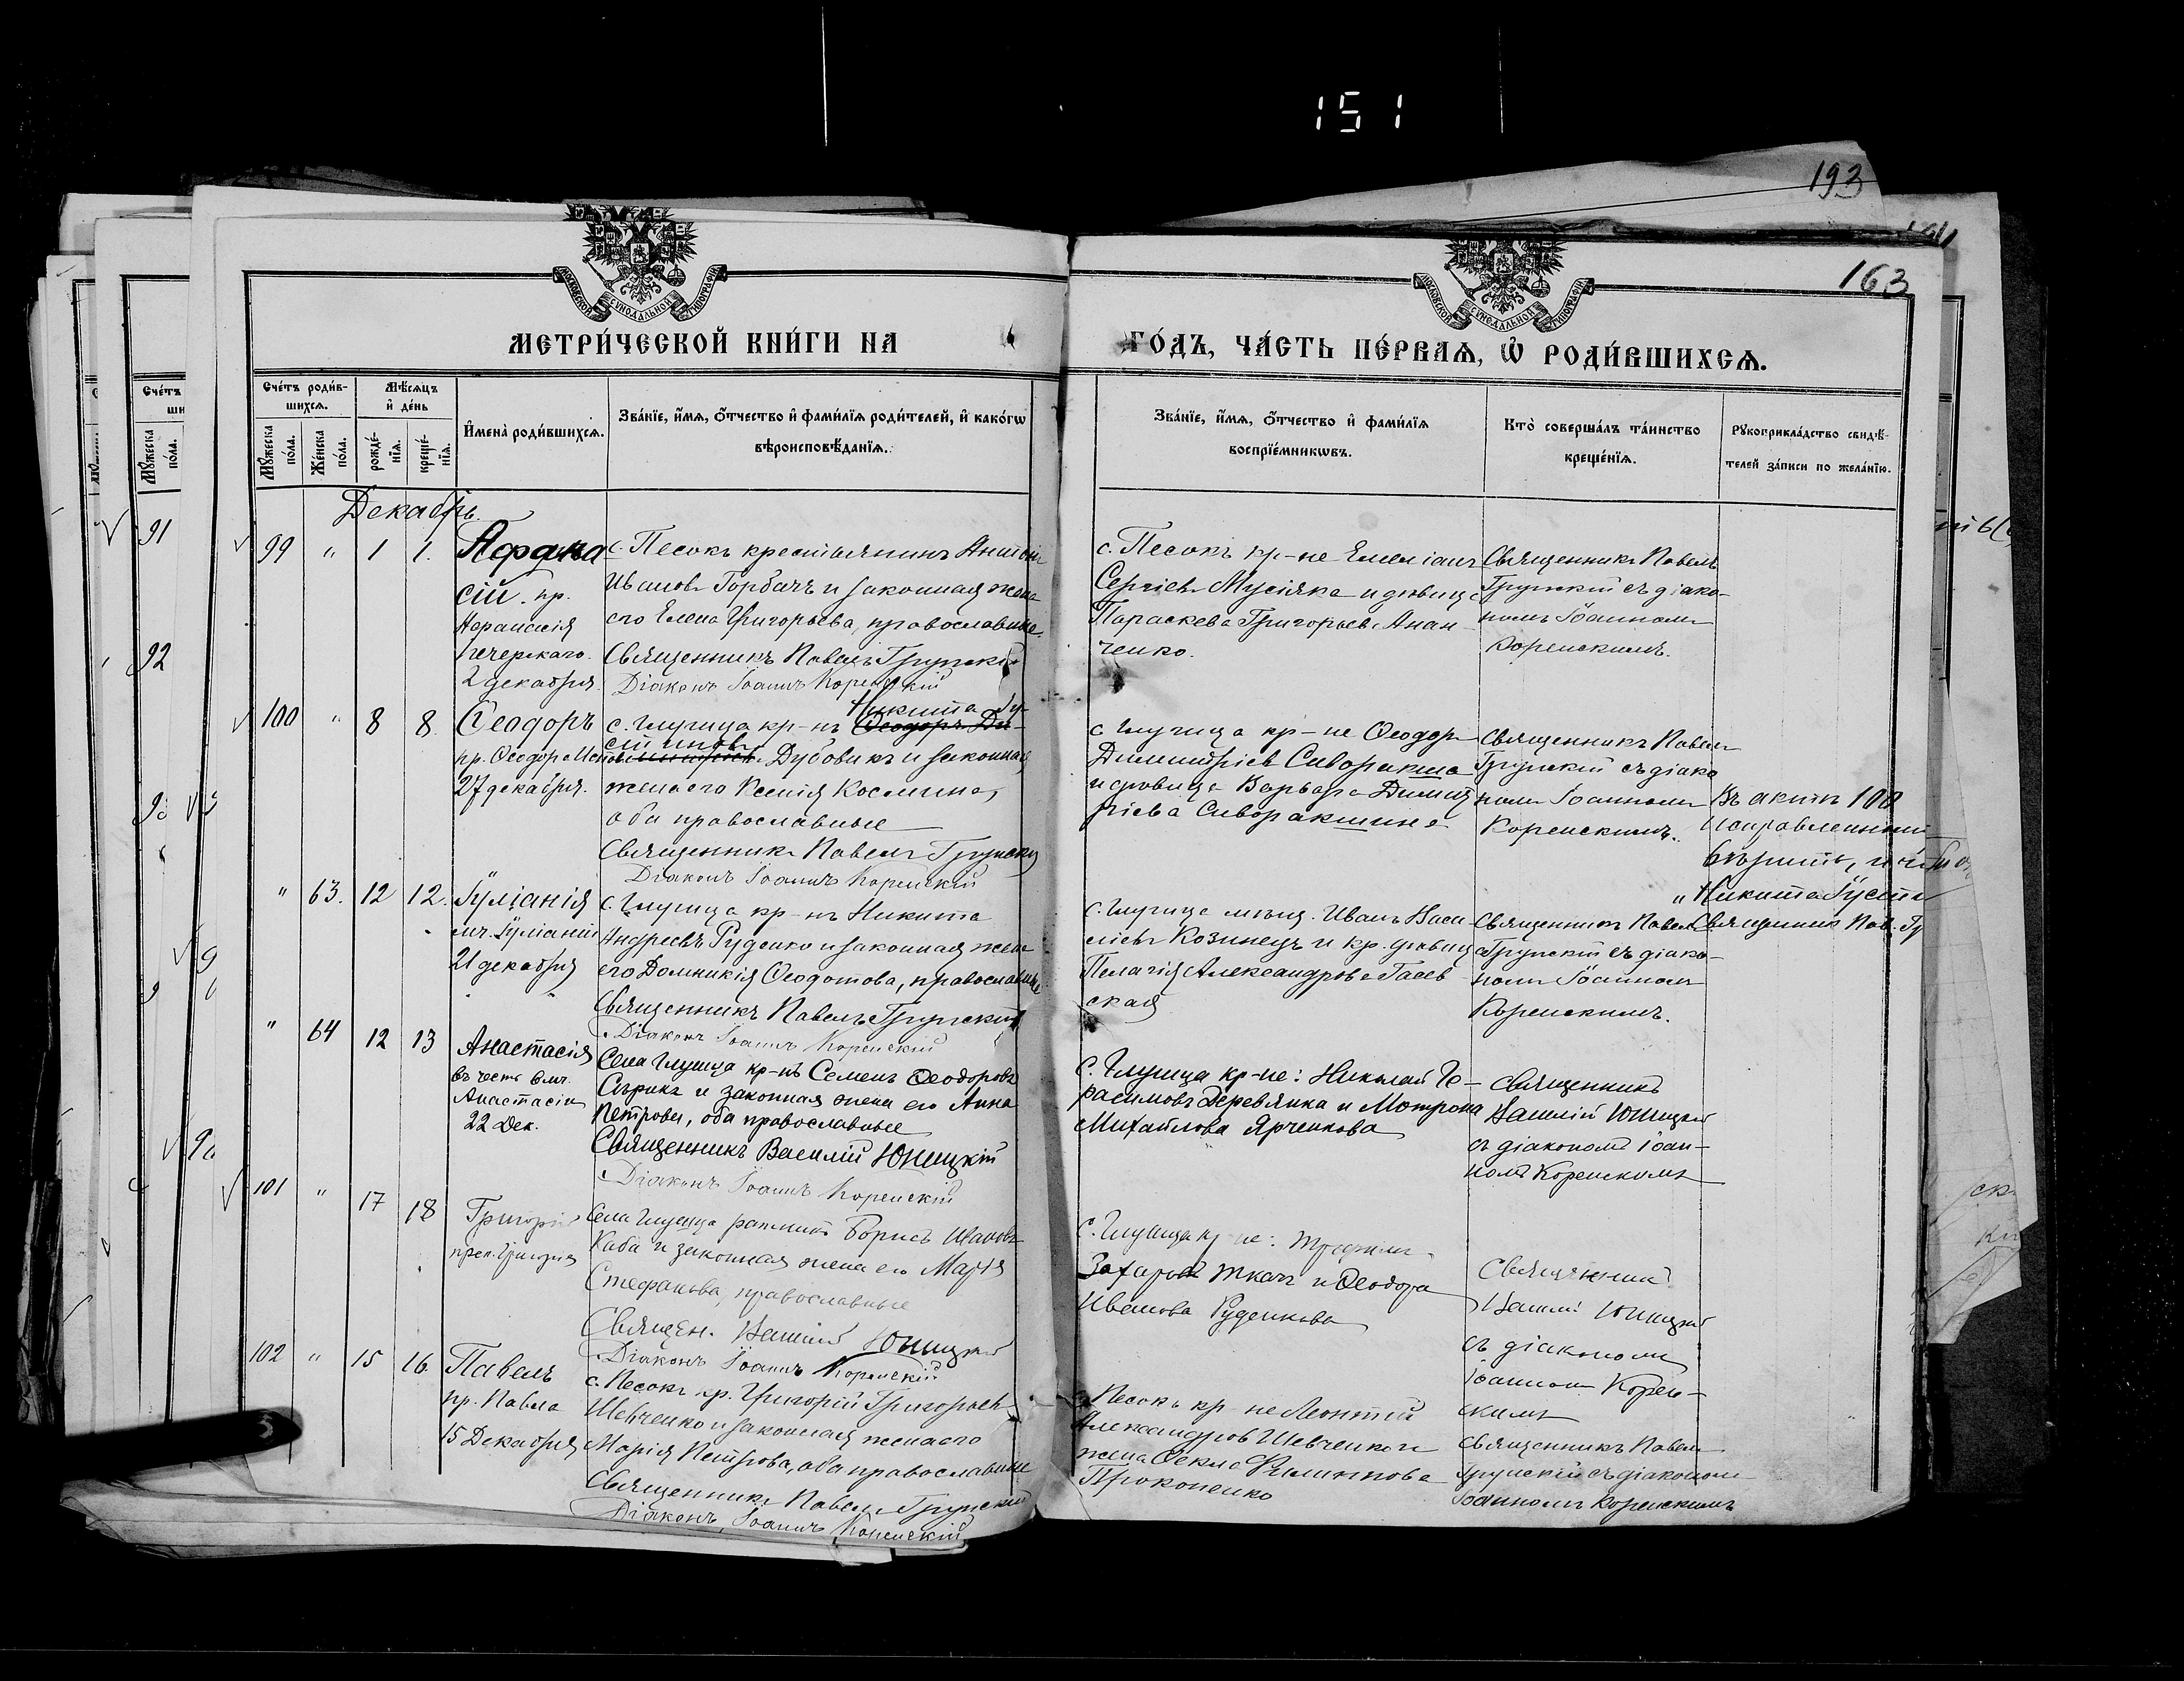 151
193
163
МОСКОВСКОЙ СѴНОДАЛЬНОЙ ТИПОГРАФІИ
МОСКОВСКОЙ СѴНОДАЛЬНОЙ ТИПОГРАФІИ
МЕТРИ́ЧЕСКОЙ КНИ́ГИ НА
ГО́ДЪ, ЧА́СТЬ ПЕ́РВАѦ, Ѽ РОДИ́ВШИХСѦ.
Сче́тъ роди́в-
шихсѧ.
Мѣ́сѧцъ
и҆ де́нь
Мꙋ́жеска
по́ла.
Же́нска
по́ла.
рожде́-
нїѧ.
креще́-
нїѧ.
И҆мена̀ роди́вшихсѧ.
Зва́нїе, и҆́мѧ, о҆́тчество и҆ фами́лїѧ роди́телей, и҆ како́гѡ
вѣроисповѣ́данїѧ.
Зва́нїе, и҆́мѧ, о҆́тчество и҆ фами́лїѧ
воспрїе́мникѡвъ.
Кто̀ соверша́лъ та́инство
креще́нїѧ.
Рꙋкоприкла́дство свидѣ́-
телей за́писи по жела́нїю.
Декабрь.
99 " 1 1.
Афана
сій. пр.
Афанасія
Печерскаго.
2 декабря.
с. Песокъ крестьянинъ Антоній
Ивановъ Горбачъ и законная жена
его Елена Григорьева, православные.
Священникъ Павелъ Грунскій
Діаконъ Іоаннъ Коренскій
с. Песокъ кр-не Емеліанъ
Сергіевъ Мусіяка и дѣвица
Параскева Григорьева Анан
ченко.
Священникъ Павелъ
Грунскій съ діако-
номъ Іоанномъ
Коренскимъ.
100 " 8 8.
Ѳеодоръ
пр. Ѳеодора
27 декабря.
Никита Iу-
с. Глушца кр-нъ Ѳеодоръ Ди-
стиновъ
Дубовикъ и законная
жена его Ксенія Космина,
оба православные
Священникъ Павелъ Грунскій
Діаконъ Іоаннъ Коренскій
с Глушца кр-не Ѳеодоръ
Димитріевъ Сиворакша
и дѣвица Варвара Димит
ріева Сиворакшина
Священникъ Павелъ
Грунскій съ діако
номъ Іоанномъ
Коренскимъ.
Въ актѣ 100
Исправленному
вѣрить,
"Никита Іусти
Священникъ Пав. Гр
" 63. 12 12.
Іуліанія
мч. Іуліаніи
21 декабря
с. Глушца кр-нъ Никита
Андреевъ Руденко и законная жена
его Домникія Ѳеодотова, православные
Священникъ Павелъ Грунскій
Діаконъ Іоаннъ Коренскій
с. Глушца мѣщ. Иванъ Васи
ліевъ Козинецъ и кр. дѣвица
Пелагія Александрова Гаев
ская
Священникъ Павелъ
Грунскій съ діако-
номъ Іоанномъ
Коренскимъ.
" 64 12 13
Анастасія
въ честь влмч.
Анастасіи
22 Дек.
Села Глушца кр-нъ Семенъ Ѳеодоровъ
Сѣрикъ и законная жена его Анна
Петрова, оба православные
Священникъ Василій Юницкій
Діаконъ Іоаннъ Коренскій
С. Глушца кр-не: Николай Ге-
расимовъ Деревянка и Мотрона
Михайлова Ярченкова
Священникъ
Василій Юницкій
съ діакономъ Іоан-
номъ Коренскимъ
101 " 17 18
Григорій
преп. Григорія
Села Глушца ратникъ Борисъ Ивановъ
Каба и законная жена его Марія
Стефанова, православные
Священ. Василій Юницкій
Діаконъ Іоаннъ Коренскій
С. Глушца кр-не: Трофимъ
Захаровъ Ткачъ и Ѳеодора
Иванова Руденкова
Священникъ
Василій Юницкій
съ діакономъ
Іоанномъ Корен-
скимъ
102 " 15 16.
Павелъ
пр. Павла
15 Декабря
с. Песокъ кр. Григорій Григорьевъ
Шевченко и законная жена его
Марія Петрова, оба православные
Священникъ Павелъ Грунскій
Діаконъ Іоаннъ Коренскій
с. Песокъ кр-не Леонтій
Александровъ Шевченко и
жена Ѳекла Филиппова
Прокопенко
Священникъ Павелъ
Грунскій съ діакономъ
Іоанномъ Коренскимъ
Сче́тъ
Мꙋ́жеска
по́ла.
91
92